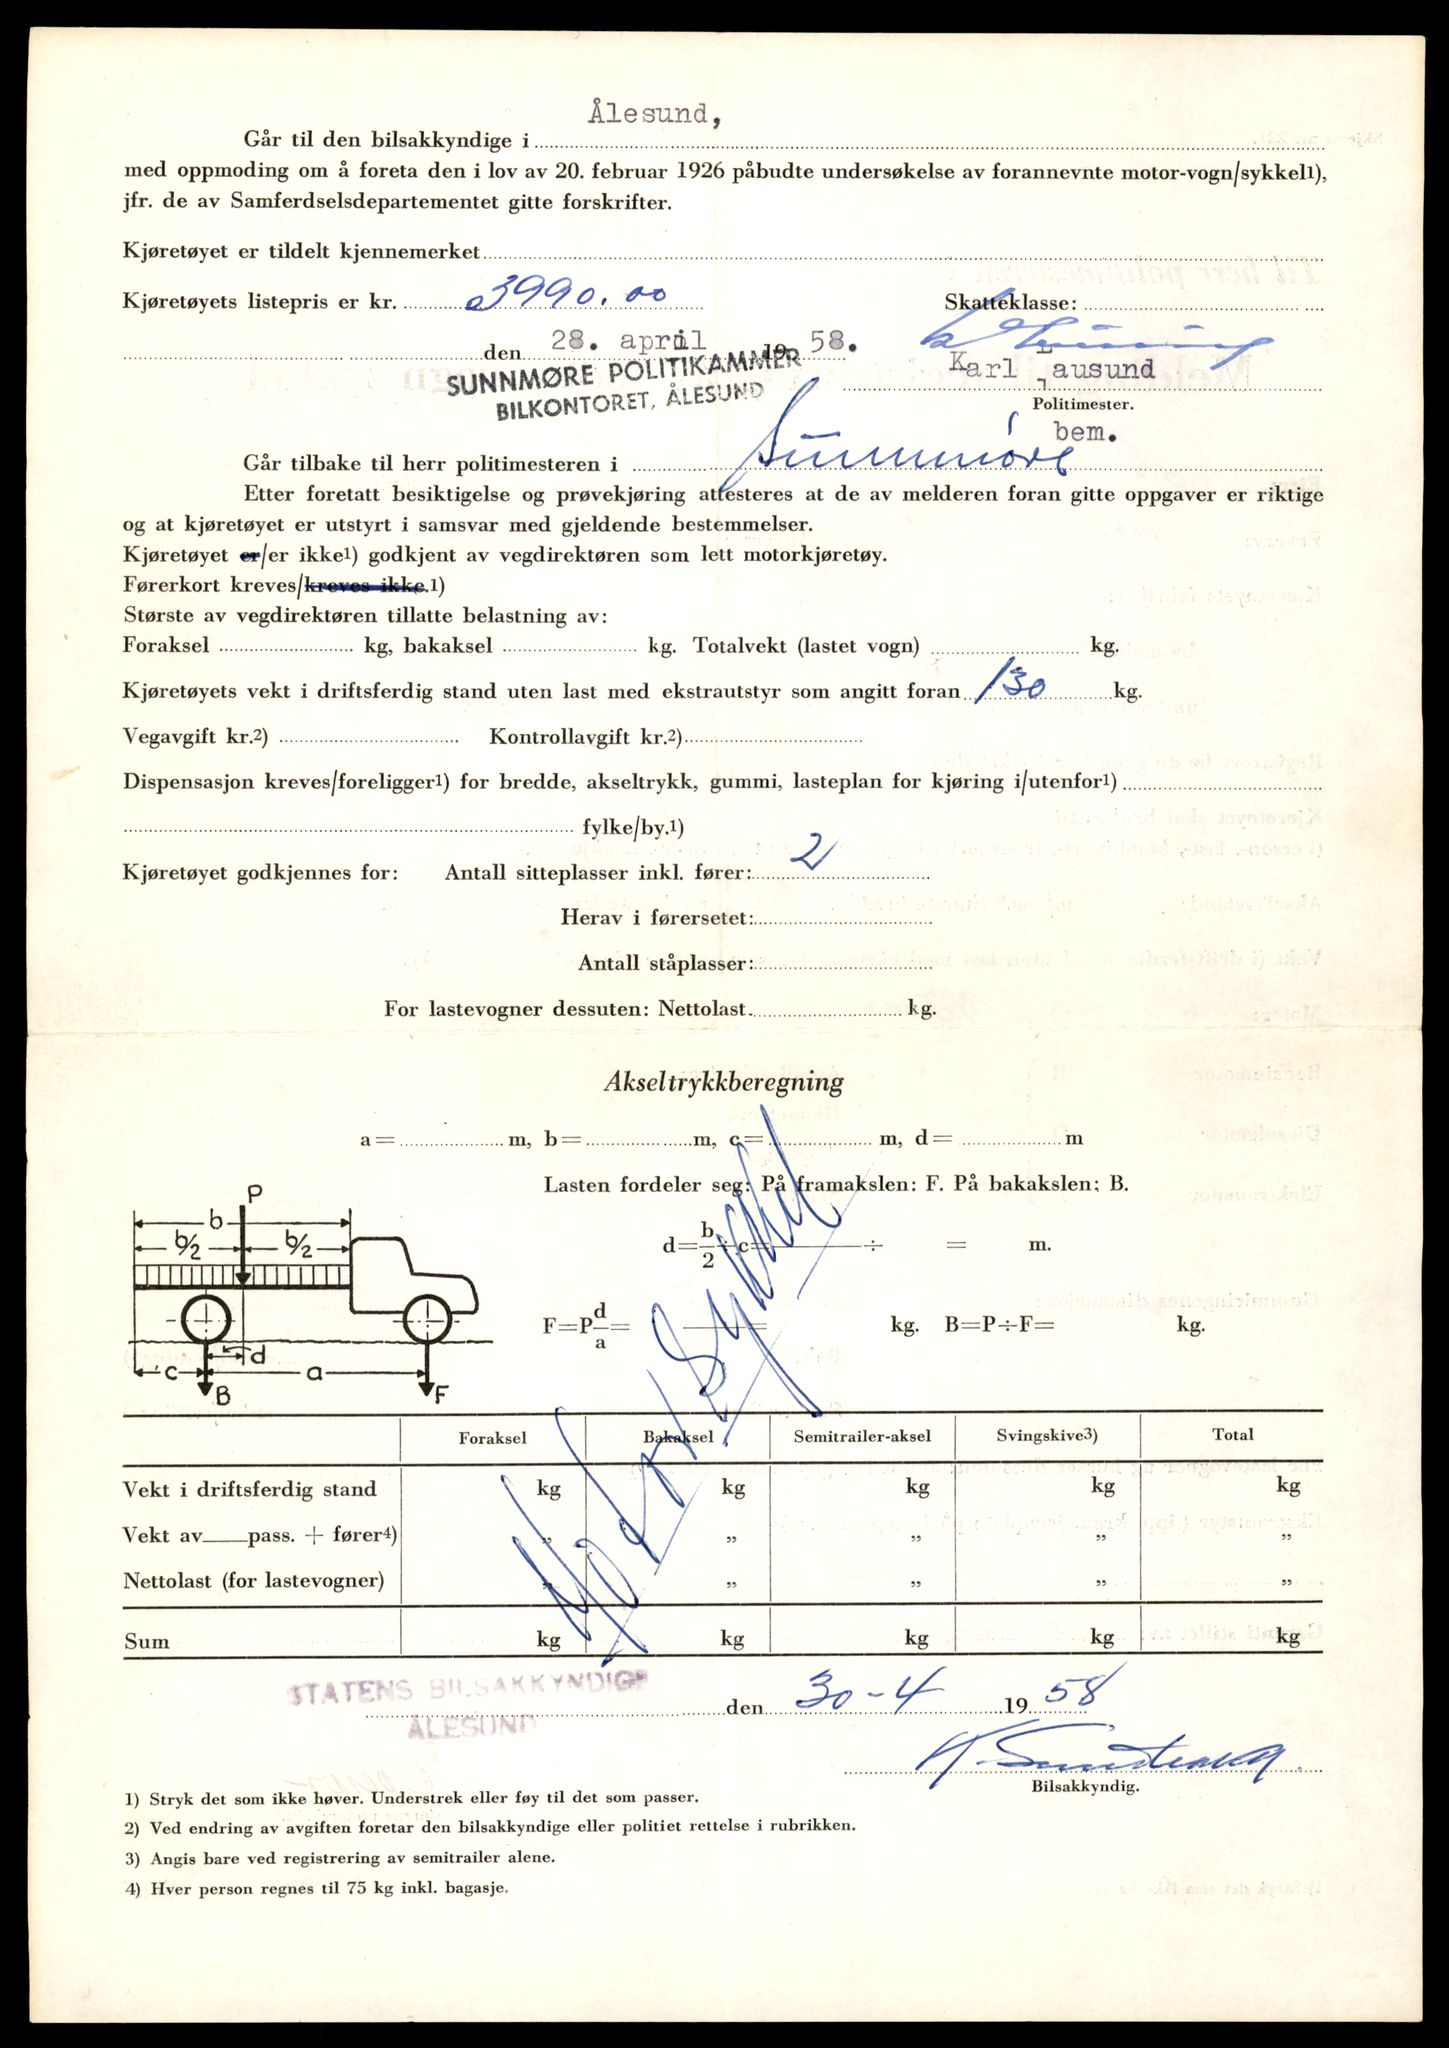 Ålesund,
Går til den bilsakkyndige i
med oppmoding om å foreta den i lov av 20. februar 1926 påbudte undersøkelse av forannevnte motor-vogn/sykkel1),
jfr. de av Samferdselsdepartementet gitte forskrifter.
Kjøretøyet er tildelt kjennemerket
Kjøretøyets listepris er kr. 3990.00 Skatteklasse:
den 28. april 1958.
SUNNMØRE POLITIKAMMER
BILKONTORET, ÅLESUND
Karl Lausund
Politimester.
bem.
Går tilbake til herr politimesteren i Sunnmöre
Etter foretatt besiktigelse og prøvekjøring attesteres at de av melderen foran gitte oppgaver er riktige
og at kjøretøyet er utstyrt i samsvar med gjeldende bestemmelser.
Kjøretøyet er/er ikke1) godkjent av vegdirektøren som lett motorkjøretøy.
Førerkort kreves/kreves ikke.1)
Største av vegdirektøren tillatte belastning av:
Foraksel kg, bakaksel kg. Totalvekt (lastet vogn) kg.
Kjøretøyets vekt i driftsferdig stand uten last med ekstrautstyr som angitt foran 130 kg.
Vegavgift kr.2) Kontrollavgift kr.2)
Dispensasjon kreves/foreligger1) for bredde, akseltrykk, gummi, lasteplan for kjøring i/utenfor1)
fylke/by.1)
Kjøretøyet godkjennes for: Antall sitteplasser inkl. fører: 2
Herav i førersetet:
Antall ståplasser:
For lastevogner dessuten: Nettolast kg.
Akseltrykkberegning
a= m, b= m, c= m, d= m
Lasten fordeler seg: På framakslen: F. På bakakslen: B.
d=b/2÷c= ÷ = m.
F=Pd/a= = kg. B=P÷F= kg.
P
b
b/2 b/2
d
c a
B F
Motorsykkel
Foraksel Bakaksel Semitrailer-aksel Svingskive3) Total
Vekt i driftsferdig stand kg kg kg kg kg
Vekt av pass. + fører4) „ „ „ „ „
Nettolast (for lastevogner) „ „ „ „ „
Sum kg kg kg kg kg
STATENS BILSAKKYNDIGE
ÅLESUND
den 30-4 1958
Bilsakkyndig.
1) Stryk det som ikke høver. Understrek eller føy til det som passer.
2) Ved endring av avgiften foretar den bilsakkyndige eller politiet rettelse i rubrikken.
3) Angis bare ved registrering av semitrailer alene.
4) Hver person regnes til 75 kg inkl. bagasje.